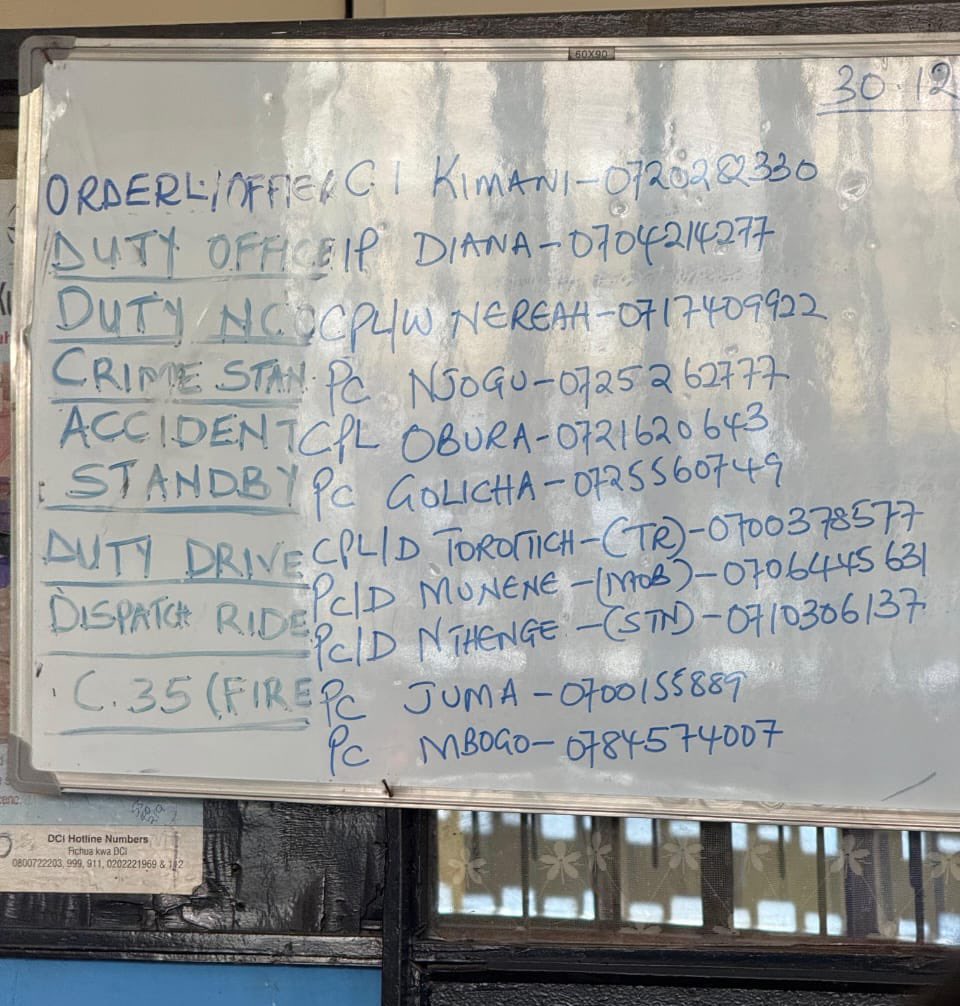 60X90
30.12
ORDERL/OFFICER C.I KIMANI-0720282330
DUTY OFFICE IP DIANA-0704214277
DUTY NCO CPL/W NEREAH-0717409922
CRIME STAN PC NJOGU-0725262777
ACCIDENT CPL OBURA-0721620643
STANDBY PC GOLICHA-0725560749
DUTY DRIVE CPL/D TOROITICH-(TR)-0700378577
PC/D MUNENE-(MOB)-0706445631
DISPATCH RIDE PC/D NTHENGE-(STN)-0710306137
C.35 (FIRE PC JUMA-0700155889
PC MBOGO-0784574007
DCI Hotline Numbers
Fichua kwa DCI
0800722203, 999, 911, 0202221969 & 112